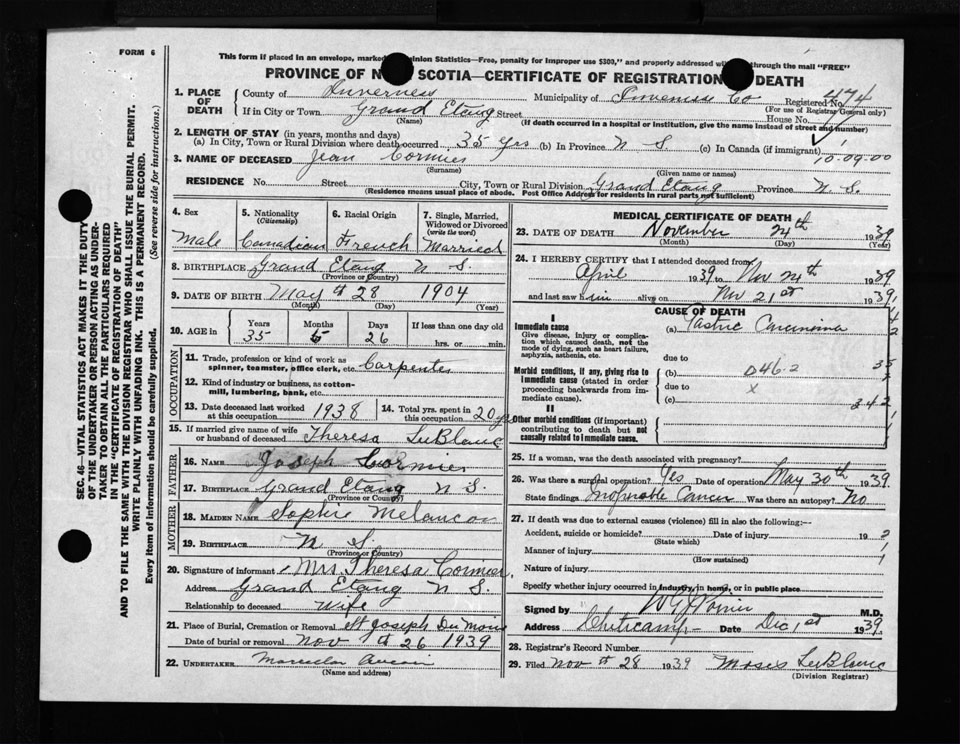 FORM 6
This form if placed in an envelope, marked inion Statistics—Free, penalty for improper use $300," and properly addressed will through the mail "FREE"
PROVINCE OF N SCOTIA—CERTIFICATE OF REGISTRATION DEATH
1. PLACE OF DEATH
County of Inverness Municipality of Inverness Co Registered No. 474
(For use of Registrar General only)
If in City or Town Grand Etang Street House No.
(Name) (If death occurred in a hospital or institution, give the name instead of street and number)
2. LENGTH OF STAY (in years, months and days)
(a) In City, Town or Rural Division where death occurred 35 yrs (b) In Province N S. (c) In Canada (if immigrant)
10.09.00
3. NAME OF DECEASED Jean Cormier
(Surname) (Given name or names)
RESIDENCE No. Street City, Town or Rural Division Grand Etang Province N. S.
(Residence means usual place of abode. Post Office Address for residents in rural parts not sufficient)
4. Sex
Male
5. Nationality
(Citizenship)
Canadian
6. Racial Origin
French
7. Single, Married, Widowed or Divorced
(write the word)
Married
8. BIRTHPLACE Grand Etang N S.
(Province or Country)
9. DATE OF BIRTH May th 28 1904
(Month) (Day) (Year)
10. AGE in
Years Months Days If less than one day old
35 5 26 hrs. or min.
OCCUPATION
11. Trade, profession or kind of work as
spinner, teamster, office clerk, etc. Carpenter
12. Kind of industry or business, as cotton-
mill, lumbering, bank, etc.
13. Date deceased last worked
at this occupation 1938
14. Total yrs. spent in
this occupation 20 yr
15. If married give name of wife
or husband of deceased Theresa LeBlanc
FATHER
16. NAME Joseph Cormier
17. BIRTHPLACE Grand Etang N S.
(Province or Country)
MOTHER
18. MAIDEN NAME Sophie Melancon
19. BIRTHPLACE N S.
(Province or Country)
20. Signature of informant Mrs. Theresa Cormier,
Address Grand Etang N S.
Relationship to deceased Wife
21. Place of Burial, Cremation or Removal St Joseph Du Moine
Date of burial or removal Nov th 26 1939
22. UNDERTAKER Aucoin
(Name and address)
MEDICAL CERTIFICATE OF DEATH
23. DATE OF DEATH November 24th 1939
(Month) (Day) (Year)
24. I HEREBY CERTIFY that I attended deceased from
April 1939 to Nov 24th 1939
and last saw him alive on Nov 21st 1939
CAUSE OF DEATH
I
Immediate cause
Give disease, injury or complica-
tion which caused death, not the
mode of dying, such as heart failure,
asphyxia, asthenia, etc.
(a) Gastric Carcinoma
due to
Morbid conditions, if any, giving rise to
immediate cause (stated in order
proceeding backwards from im-
mediate cause).
(b) 046.2
due to x
(c) 342
II
Other morbid conditions (if important)
contributing to death but not
causally related to immediate cause.
25. If a woman, was the death associated with pregnancy?
26. Was there a surgical operation? Yes Date of operation May 30th 1939
State findings Inoperable Cancer Was there an autopsy? No
27. If death was due to external causes (violence) fill in also the following:—
Accident, suicide or homicide? Date of injury 19
(State which)
Manner of injury
(How sustained)
Nature of injury
Specify whether injury occurred in industry, in home, or in public place
Signed by W G Poirier M.D.
Address Cheticamp Date Dec 1st 1939
28. Registrar's Record Number
29. Filed Nov th 28 1939 Moses LeBlanc
(Division Registrar)
SEC. 46—VITAL STATISTICS ACT MAKES IT THE DUTY
OF THE UNDERTAKER OR PERSON ACTING AS UNDER-
TAKER TO OBTAIN ALL THE PARTICULARS REQUIRED
IN THE "CERTIFICATE OF REGISTRATION OF DEATH"
AND TO FILE THE SAME WITH THE DIVISION REGISTRAR WHO SHALL ISSUE THE BURIAL PERMIT.
WRITE PLAINLY WITH UNFADING INK. THIS IS A PERMANENT RECORD.
Every item of information should be carefully supplied. (See reverse side for instructions.)